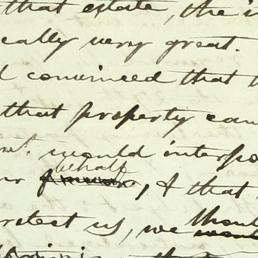 that estate, the i
cally very great.
d convinced that t
that property can
would interpo
behalf
, & that
rotect us, we